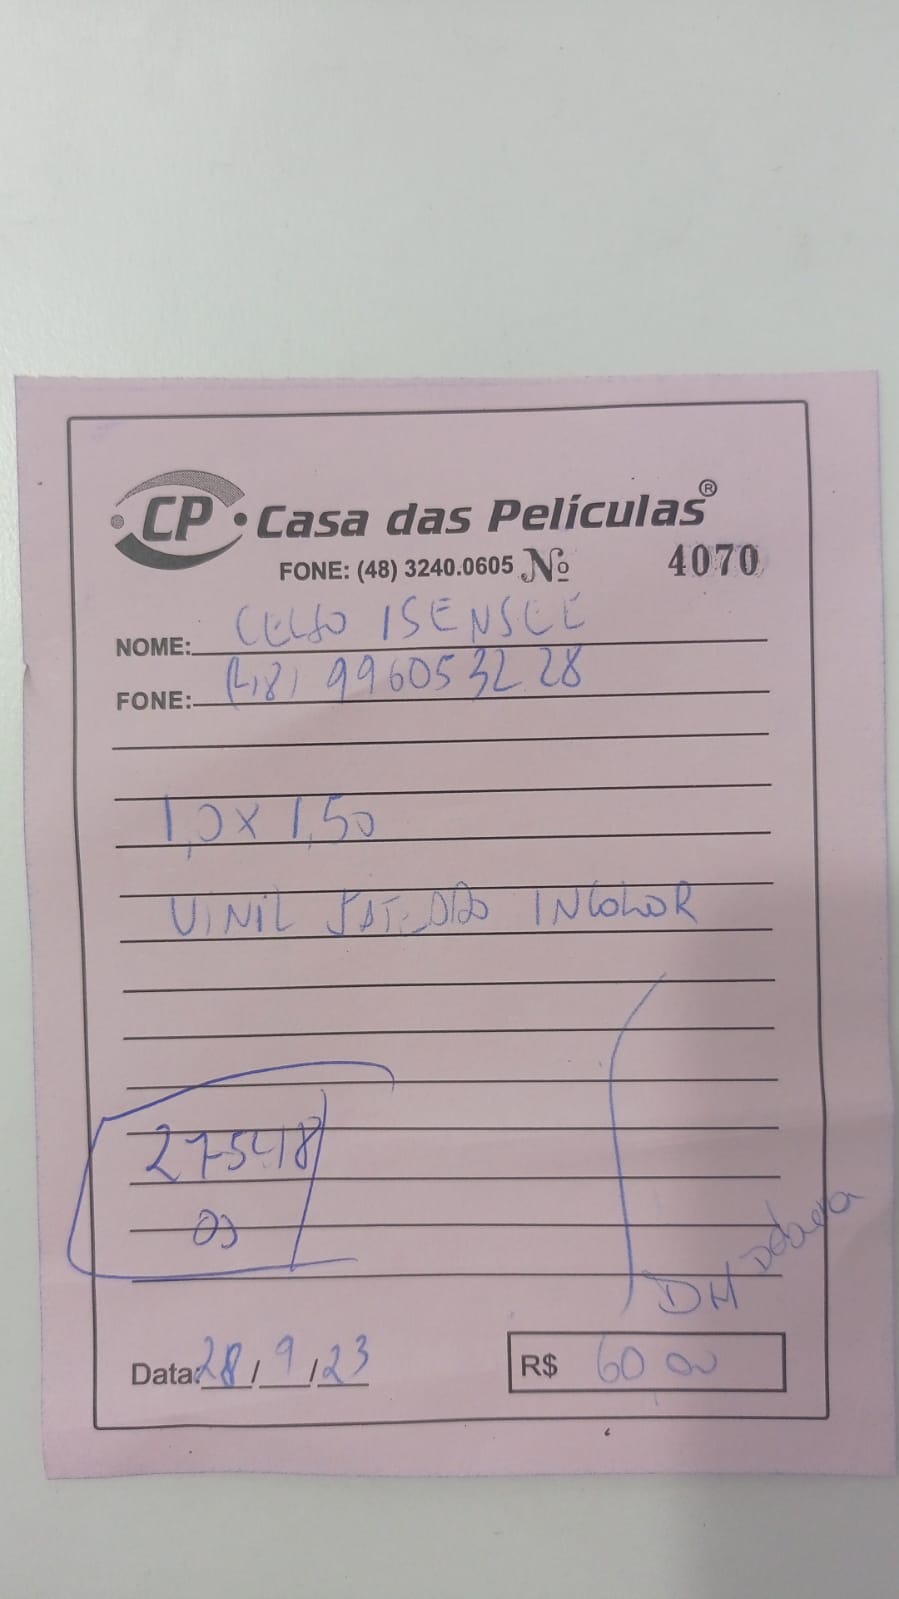 CP Casa das Películas®
FONE: (48) 3240.0605 Nº 4070
NOME: CELSO ISENSEE
FONE: (48) 99605 32 28
1,0 x 1,50
VINIL JATEADO INCOLOR
27548
OS
DH
Data: 28/9/23 R$ 60 00